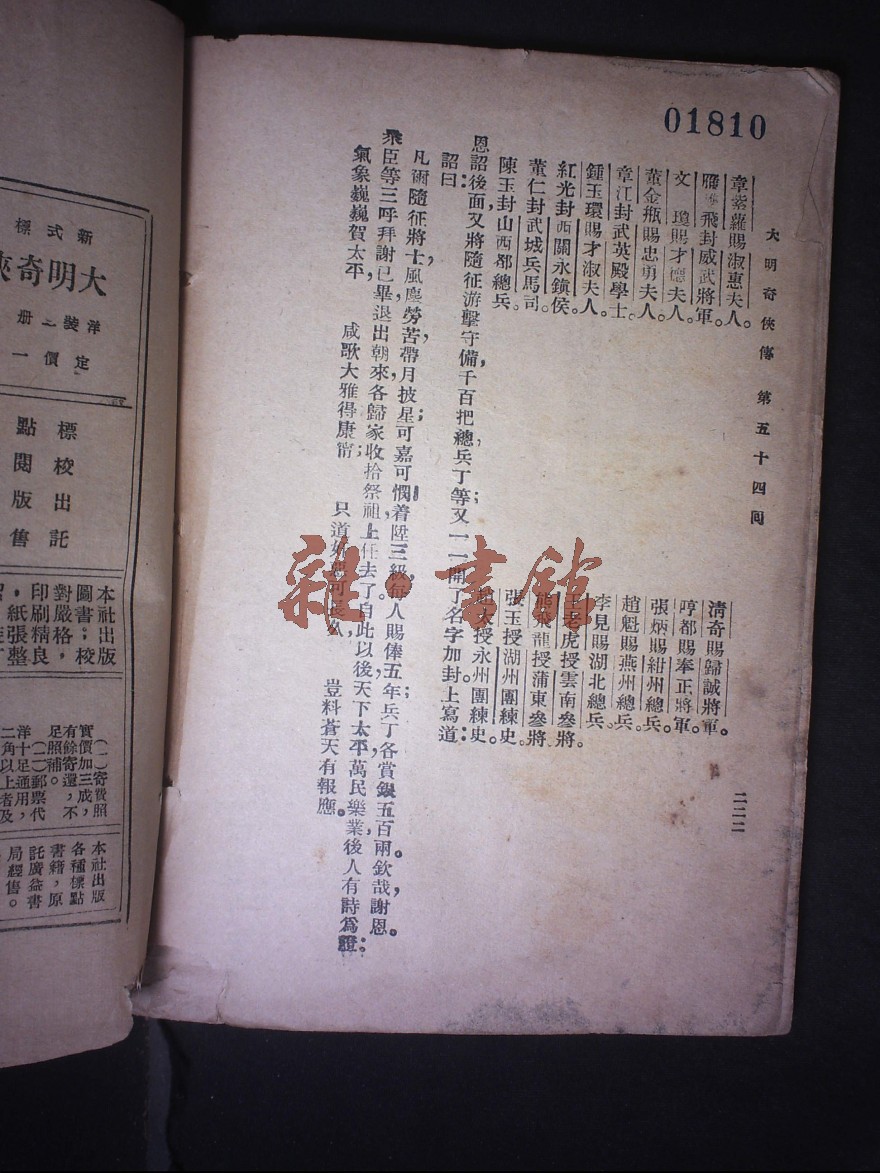 01810
大明奇俠傳 第五十四回
二二二
章紫蘿賜淑惠夫人。
飛封威武將軍。
文 瓊賜才德夫人。
董金瓶賜忠勇夫人。
章江封武英殿學士。
鍾玉環賜才淑夫人。
紅光封西關永鎮侯。
董仁封武城兵馬司。
陳玉封山西都總兵。
清奇賜歸誠將軍。
哼都賜奉正將軍。
張炳賜紺州總兵。
趙魁賜燕州總兵。
李見賜湖北總兵。
王老虎授雲南參將。
熊飛龍授蒲東參將。
張玉授湖州團練史。
趙大授永州團練史。
恩詔後面又將隨征游擊守備千百把總兵丁等又一一開了名字加封上寫道:
詔曰:
凡爾隨征將士,風塵勞苦,帶月披星;可嘉可憫!着陞三級,每人賜俸五年;兵丁各賞銀五百兩。欽哉,謝恩。
衆臣等三呼拜謝已畢,退出朝來,各歸家收拾祭祖,上任去了。自此以後,天下太平,萬民樂業,後人有詩爲證:
氣象巍巍賀太平, 咸歌大雅得康甯; 只道奸 可長久, 豈料蒼天有報應。
新式標
大明奇俠
洋裝二册
定價一
標點
校閱
出版
託售
本社出版
圖書;校
對嚴格,
印刷精良
,紙張整
實價加三成,
(一)寄費照
有餘寄還,不
足照補。
(二)郵票代
洋十足通用,
二角以上者及
本社出版
各種標點
書籍,原
託廣益書
局經售。
雜·書館